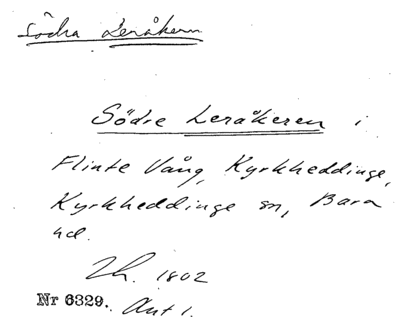 Södra Leråkern
Södre Leråkeren i
Flinte Vång, Kyrkheddinge,
Kyrkheddinge sn, Bara
hd.
Lh. 1802
Nr 6329. Akt 1.